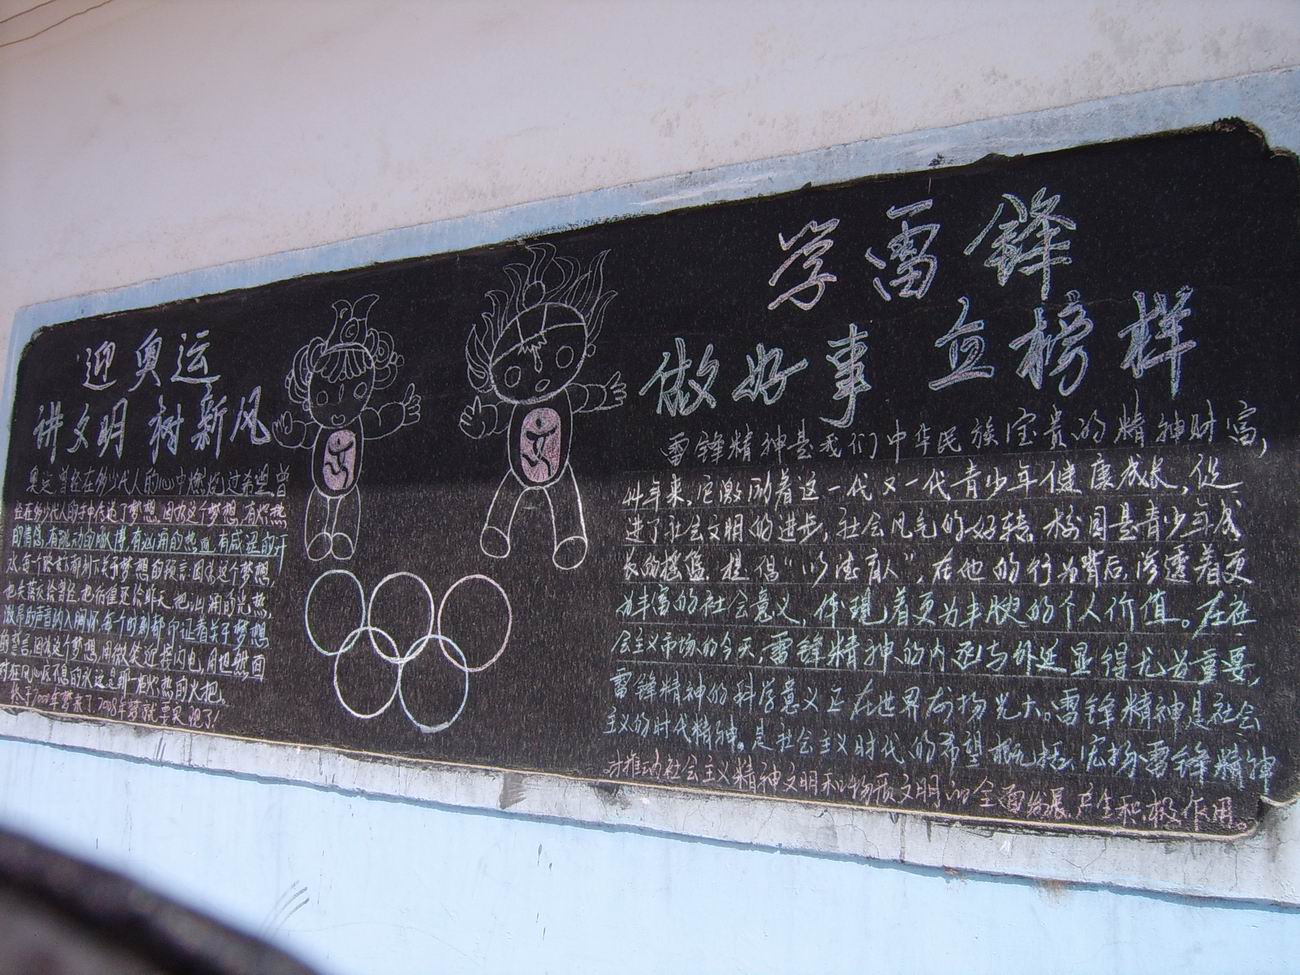 迎奥运
讲文明 树新风
奥运曾经在多少代人的心中燃烧过希望,曾
经在多少代人的手中传递了梦想,因为这个梦想,有炽热
的情感,有跳动的脉搏,有汹涌的热血,有咸涩的汗
水,每个
因为这个梦想,
的誓言,因为这个梦想,用微笑迎接闪电,用坦然面
对狂风,心底不息的永远是那一个炽热的火把。
终于2008年梦来了,2008年梦就要实现了!
学雷锋
做好事 立榜样
雷锋精神是我们中华民族宝贵的精神财富,
44年来,它激励着这一代又一代青少年健康成长,促
进了社会文明的进步,社会风气的好转。校园是青少年成
长的摇篮,提倡“以德育人”,在他的行为背后,渗透着更
为丰富的社会意义,体现着更为丰腴的个人价值。在在
会主义市场的今天,雷锋精神的内涵与外延显得尤为重要,
雷锋精神的科学意义正在世界
光大。雷锋精神是社会
主义的时代精神。是社会主义时代的希望概括,宏扬雷锋精神
对推动社会主义精神文明和物质文明的全面发展,产生积极作用。